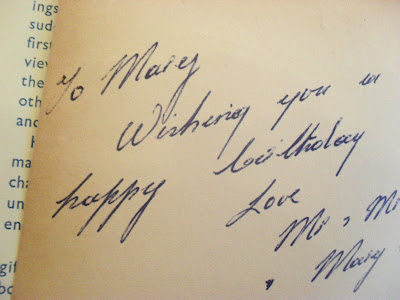 ings
sud
first
view
the
oth
and
ma
cha
un
en
gif
To Mary
Wishing you a
happy birthday
Love
Mr , M
, Mary